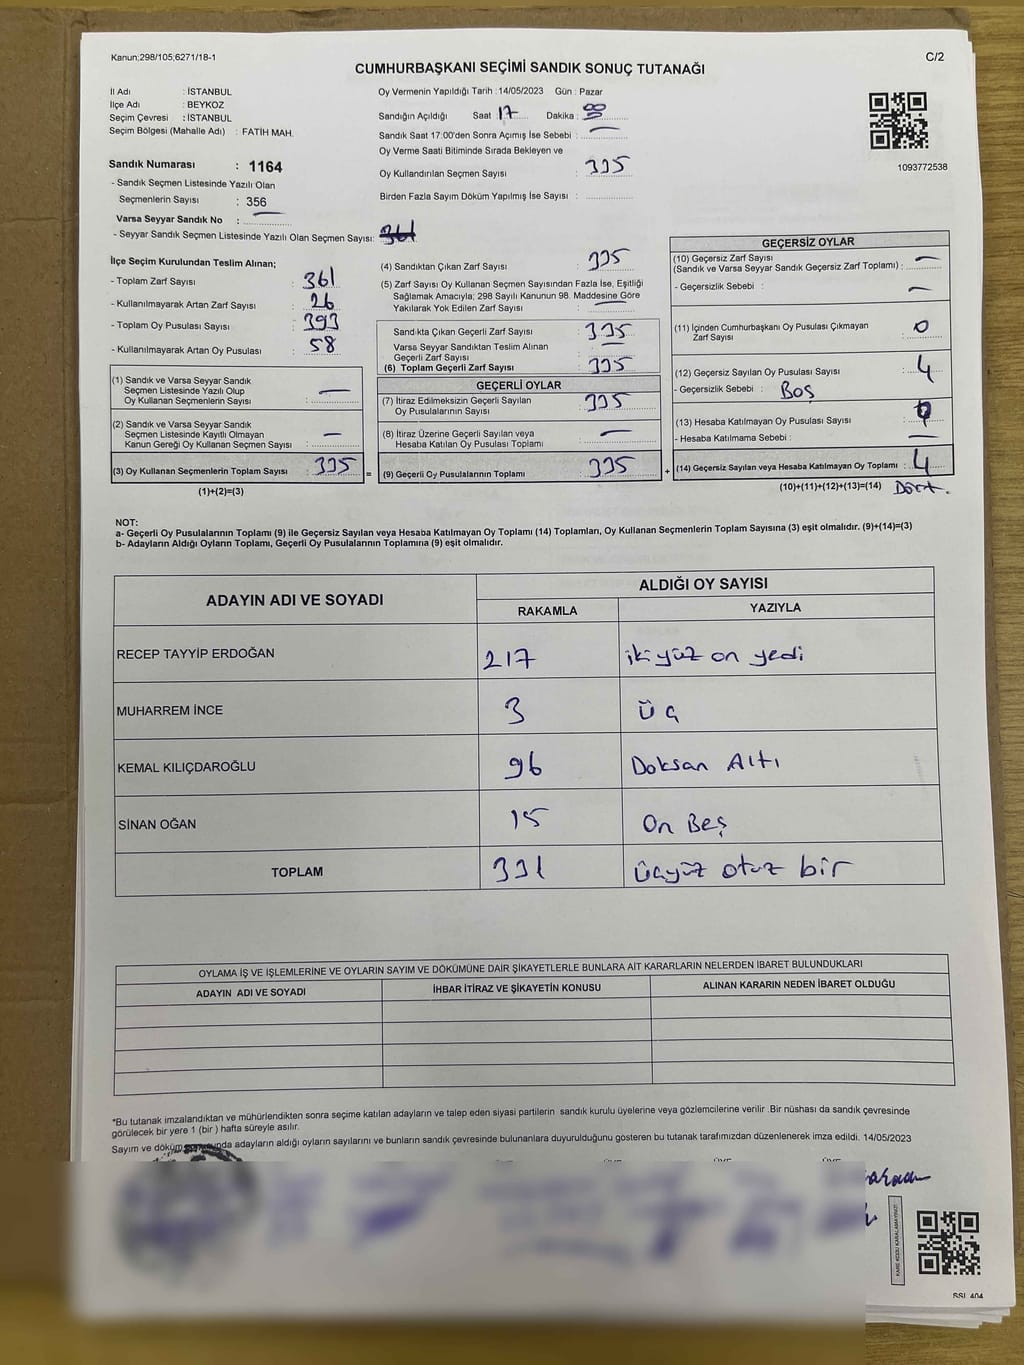 Kanun;298/105;6271/18-1
C/2
CUMHURBAŞKANI SEÇİMİ SANDIK SONUÇ TUTANAĞI
İl Adı : İSTANBUL
İlçe Adı : BEYKOZ
Seçim Çevresi : İSTANBUL
Seçim Bölgesi (Mahalle Adı) : FATİH MAH.
Sandık Numarası : 1164
- Sandık Seçmen Listesinde Yazılı Olan
Seçmenlerin Sayısı : 356
Varsa Seyyar Sandık No :
- Seyyar Sandık Seçmen Listesinde Yazılı Olan Seçmen Sayısı: 361
Oy Vermenin Yapıldığı Tarih : 14/05/2023 Gün : Pazar
Sandığın Açıldığı Saat 17 Dakika : 00
Sandık Saat 17:00'den Sonra Açımış İse Sebebi :
Oy Verme Saati Bitiminde Sırada Bekleyen ve
Oy Kullandırılan Seçmen Sayısı : 335
Birden Fazla Sayım Döküm Yapılmış İse Sayısı :
1093772538
İlçe Seçim Kurulundan Teslim Alınan;
- Toplam Zarf Sayısı : 361
- Kullanılmayarak Artan Zarf Sayısı : 26
- Toplam Oy Pusulası Sayısı : 393
- Kullanılmayarak Artan Oy Pusulası : 58
(1) Sandık ve Varsa Seyyar Sandık
Seçmen Listesinde Yazılı Olup
Oy Kullanan Seçmenlerin Sayısı :
(2) Sandık ve Varsa Seyyar Sandık
Seçmen Listesinde Kayıtlı Olmayan
Kanun Gereği Oy Kullanan Seçmen Sayısı :
(3) Oy Kullanan Seçmenlerin Toplam Sayısı : 335 =
(1)+(2)=(3)
(4) Sandıktan Çıkan Zarf Sayısı : 335
(5) Zarf Sayısı Oy Kullanan Seçmen Sayısından Fazla İse, Eşitliği
Sağlamak Amacıyla; 298 Sayılı Kanunun 98. Maddesine Göre
Yakılarak Yok Edilen Zarf Sayısı :
Sandıkta Çıkan Geçerli Zarf Sayısı : 335
Varsa Seyyar Sandıktan Teslim Alınan
Geçerli Zarf Sayısı :
(6) Toplam Geçerli Zarf Sayısı : 335
GEÇERLİ OYLAR
(7) İtiraz Edilmeksizin Geçerli Sayılan
Oy Pusulalarının Sayısı : 335
(8) İtiraz Üzerine Geçerli Sayılan veya
Hesaba Katılan Oy Pusulası Toplamı :
(9) Geçerli Oy Pusulalarının Toplamı : 335 +
GEÇERSİZ OYLAR
(10) Geçersiz Zarf Sayısı
(Sandık ve Varsa Seyyar Sandık Geçersiz Zarf Toplamı) :
- Geçersizlik Sebebi :
(11) İçinden Cumhurbaşkanı Oy Pusulası Çıkmayan
Zarf Sayısı : 0
(12) Geçersiz Sayılan Oy Pusulası Sayısı : 4
- Geçersizlik Sebebi : BOŞ
(13) Hesaba Katılmayan Oy Pusulası Sayısı :
- Hesaba Katılmama Sebebi :
(14) Geçersiz Sayılan veya Hesaba Katılmayan Oy Toplamı : 4
(10)+(11)+(12)+(13)=(14) Dört.
NOT:
a- Geçerli Oy Pusulalarının Toplamı (9) ile Geçersiz Sayılan veya Hesaba Katılmayan Oy Toplamı (14) Toplamları, Oy Kullanan Seçmenlerin Toplam Sayısına (3) eşit olmalıdır. (9)+(14)=(3)
b- Adayların Aldığı Oyların Toplamı, Geçerli Oy Pusulalarının Toplamına (9) eşit olmalıdır.
ADAYIN ADI VE SOYADI
ALDIĞI OY SAYISI
RAKAMLA YAZIYLA
RECEP TAYYİP ERDOĞAN 217 iki yüz on yedi
MUHARREM İNCE 3 Üç
KEMAL KILIÇDAROĞLU 96 Doksan Altı
SİNAN OĞAN 15 On Beş
TOPLAM 331 Üçyüz otuz bir
OYLAMA İŞ VE İŞLEMLERİNE VE OYLARIN SAYIM VE DÖKÜMÜNE DAİR ŞİKAYETLERLE BUNLARA AİT KARARLARIN NELERDEN İBARET BULUNDUKLARI
ADAYIN ADI VE SOYADI İHBAR İTİRAZ VE ŞİKAYETİN KONUSU ALINAN KARARIN NEDEN İBARET OLDUĞU
*Bu tutanak imzalandıktan ve mühürlendikten sonra seçime katılan adayların ve talep eden siyasi partilerin sandık kurulu üyelerine veya gözlemcilerine verilir .Bir nüshası da sandık çevresinde
görülecek bir yere 1 (bir ) hafta süreyle asılır.
Sayım ve döküm adayların aldığı oyların sayılarını ve bunların sandık çevresinde bulunanlara duyurulduğunu gösteren bu tutanak tarafımızdan düzenlenerek imza edildi. 14/05/2023
KARE KODU KARALAMAYINIZ!